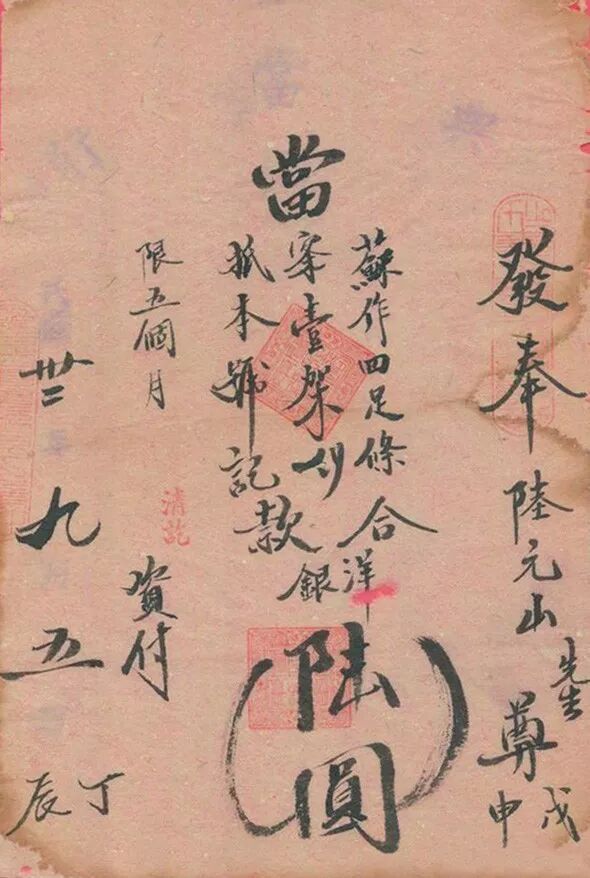 發奉陸元山先生尊
戊申
當
蘇作四足條
案壹架
抵本號記款
合洋銀
陸圓
限五個月
清訖
資付
卅二 九 五
丁辰